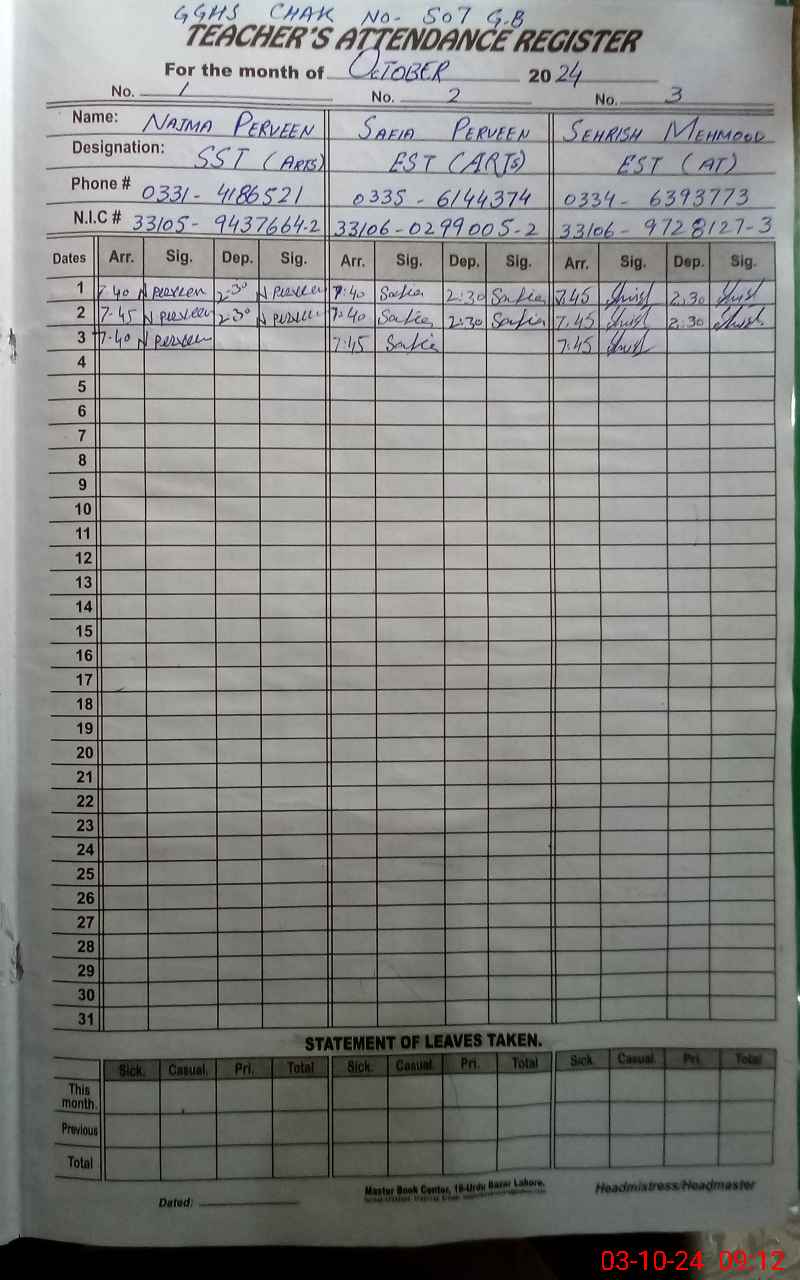 GGHS CHAK No- 507 G.B
TEACHER'S ATTENDANCE REGISTER
For the month of OCTOBER 2024
No. 1 No. 2 No. 3
Name: NAJMA PERVEEN SAFIA PERVEEN SEHRISH MEHMOOD
Designation: SST (ARTS) EST (ARTS) EST (AT)
Phone # 0331- 4186521 0335 - 6144374 0334 - 6393773
N.I.C # 33105- 9437664-2 33106-0299005-2 33106- 9728127-3
Dates Arr. Sig. Dep. Sig. Arr. Sig. Dep. Sig. Arr. Sig. Dep. Sig.
1 7-40 N perveen 2:30 N perveen 7:40 Safia 2:30 Safia 7.45 2.30
2 7-45 N perveen 2:30 N perveen 7:40 Safia 2:30 Safia 7.45 2:30
3 7-40 N perveen 7:45 Safia 7:45
4
5
6
7
8
9
10
11
12
13
14
15
16
17
18
19
20
21
22
23
24
25
26
27
28
29
30
31
STATEMENT OF LEAVES TAKEN.
Sick. Casual. Pri. Total Sick. Casual. Pri. Total Sick. Casual. Pri. Total
This
month.
Previous
Total
Dated: Master Book Center, 16-Urdu Bazar Lahore. Headmistress/Headmaster
03-10-24 09:12